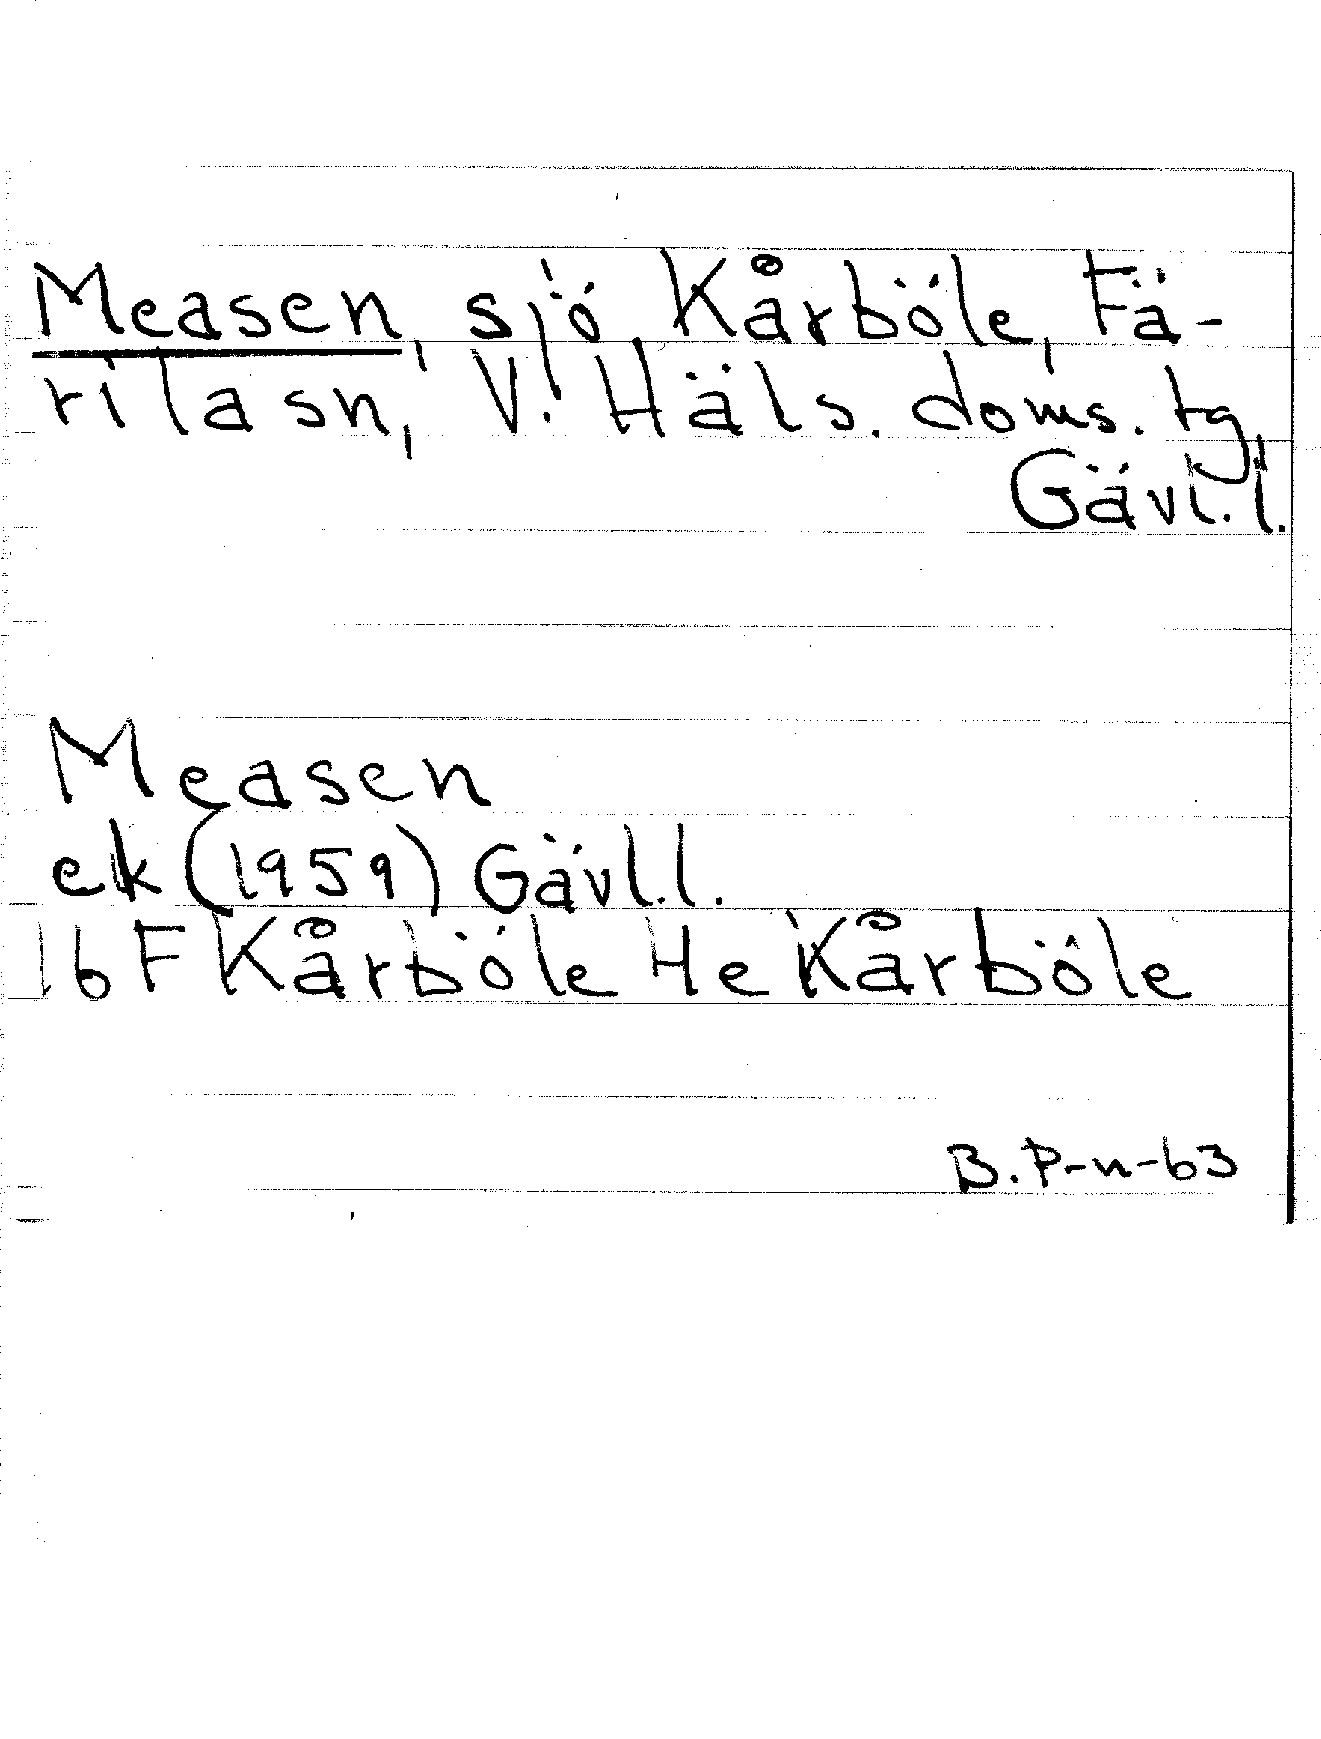 Measen, sjö Kårböle, Fä-
rila sn, V. Häls. doms. tg,
Gävl. l.
Measen
ek (1959) Gävl. l.
16 F Kårböle 4e Kårböle
B. P-n -63